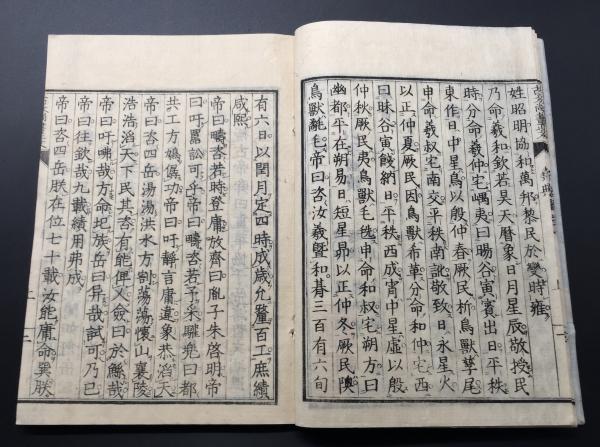 姓昭明協和萬邦黎民於變時雍
乃命羲和欽若昊天曆象日月星辰敬授民
時分命羲仲宅嵎夷曰暘谷寅賓出日平秩
東作日中星鳥以殷仲春厥民析鳥獸孳尾
申命羲叔宅南交平秩南訛敬致日永星火
以正仲夏厥民因鳥獸希革分命和仲宅西
曰昧谷寅餞納日平秩西成宵中星虛以殷
仲秋厥民夷鳥獸毛毨申命和叔宅朔方曰
幽都平在朔易日短星昴以正仲冬厥民隩
鳥獸氄毛帝曰咨汝羲曁和朞三百有六旬
有六日以閏月定四時成歳允釐百工庶績
咸熙
帝曰疇咨若時登庸放齊曰胤子朱啓明帝
曰吁嚚訟可乎帝曰疇咨若予采驩兜曰都
共工方鳩僝功帝曰吁靜言庸違象恭滔天
帝曰咨四岳湯湯洪水方割蕩蕩懷山襄陵
浩浩滔天下民其咨有能俾乂僉曰於鯀哉
帝曰吁咈哉方命圮族岳曰异哉試可乃已
帝曰往欽哉九載績用弗成
帝曰咨四岳朕在位七十載汝能庸命巽朕